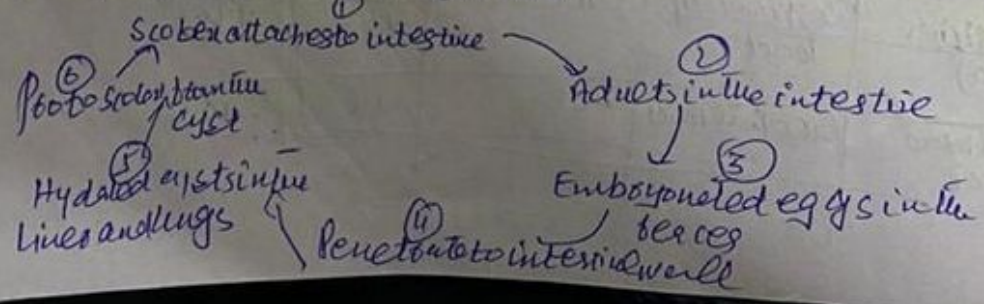 ①
Scolex attaches to intestine
②
Adults in the intestine
③
Embryonated eggs in the
feaces
④
Penetrate to intestinal wall
⑤
Hydated cysts in the
Liver and lungs
⑥
Protoscolex from the
cyst